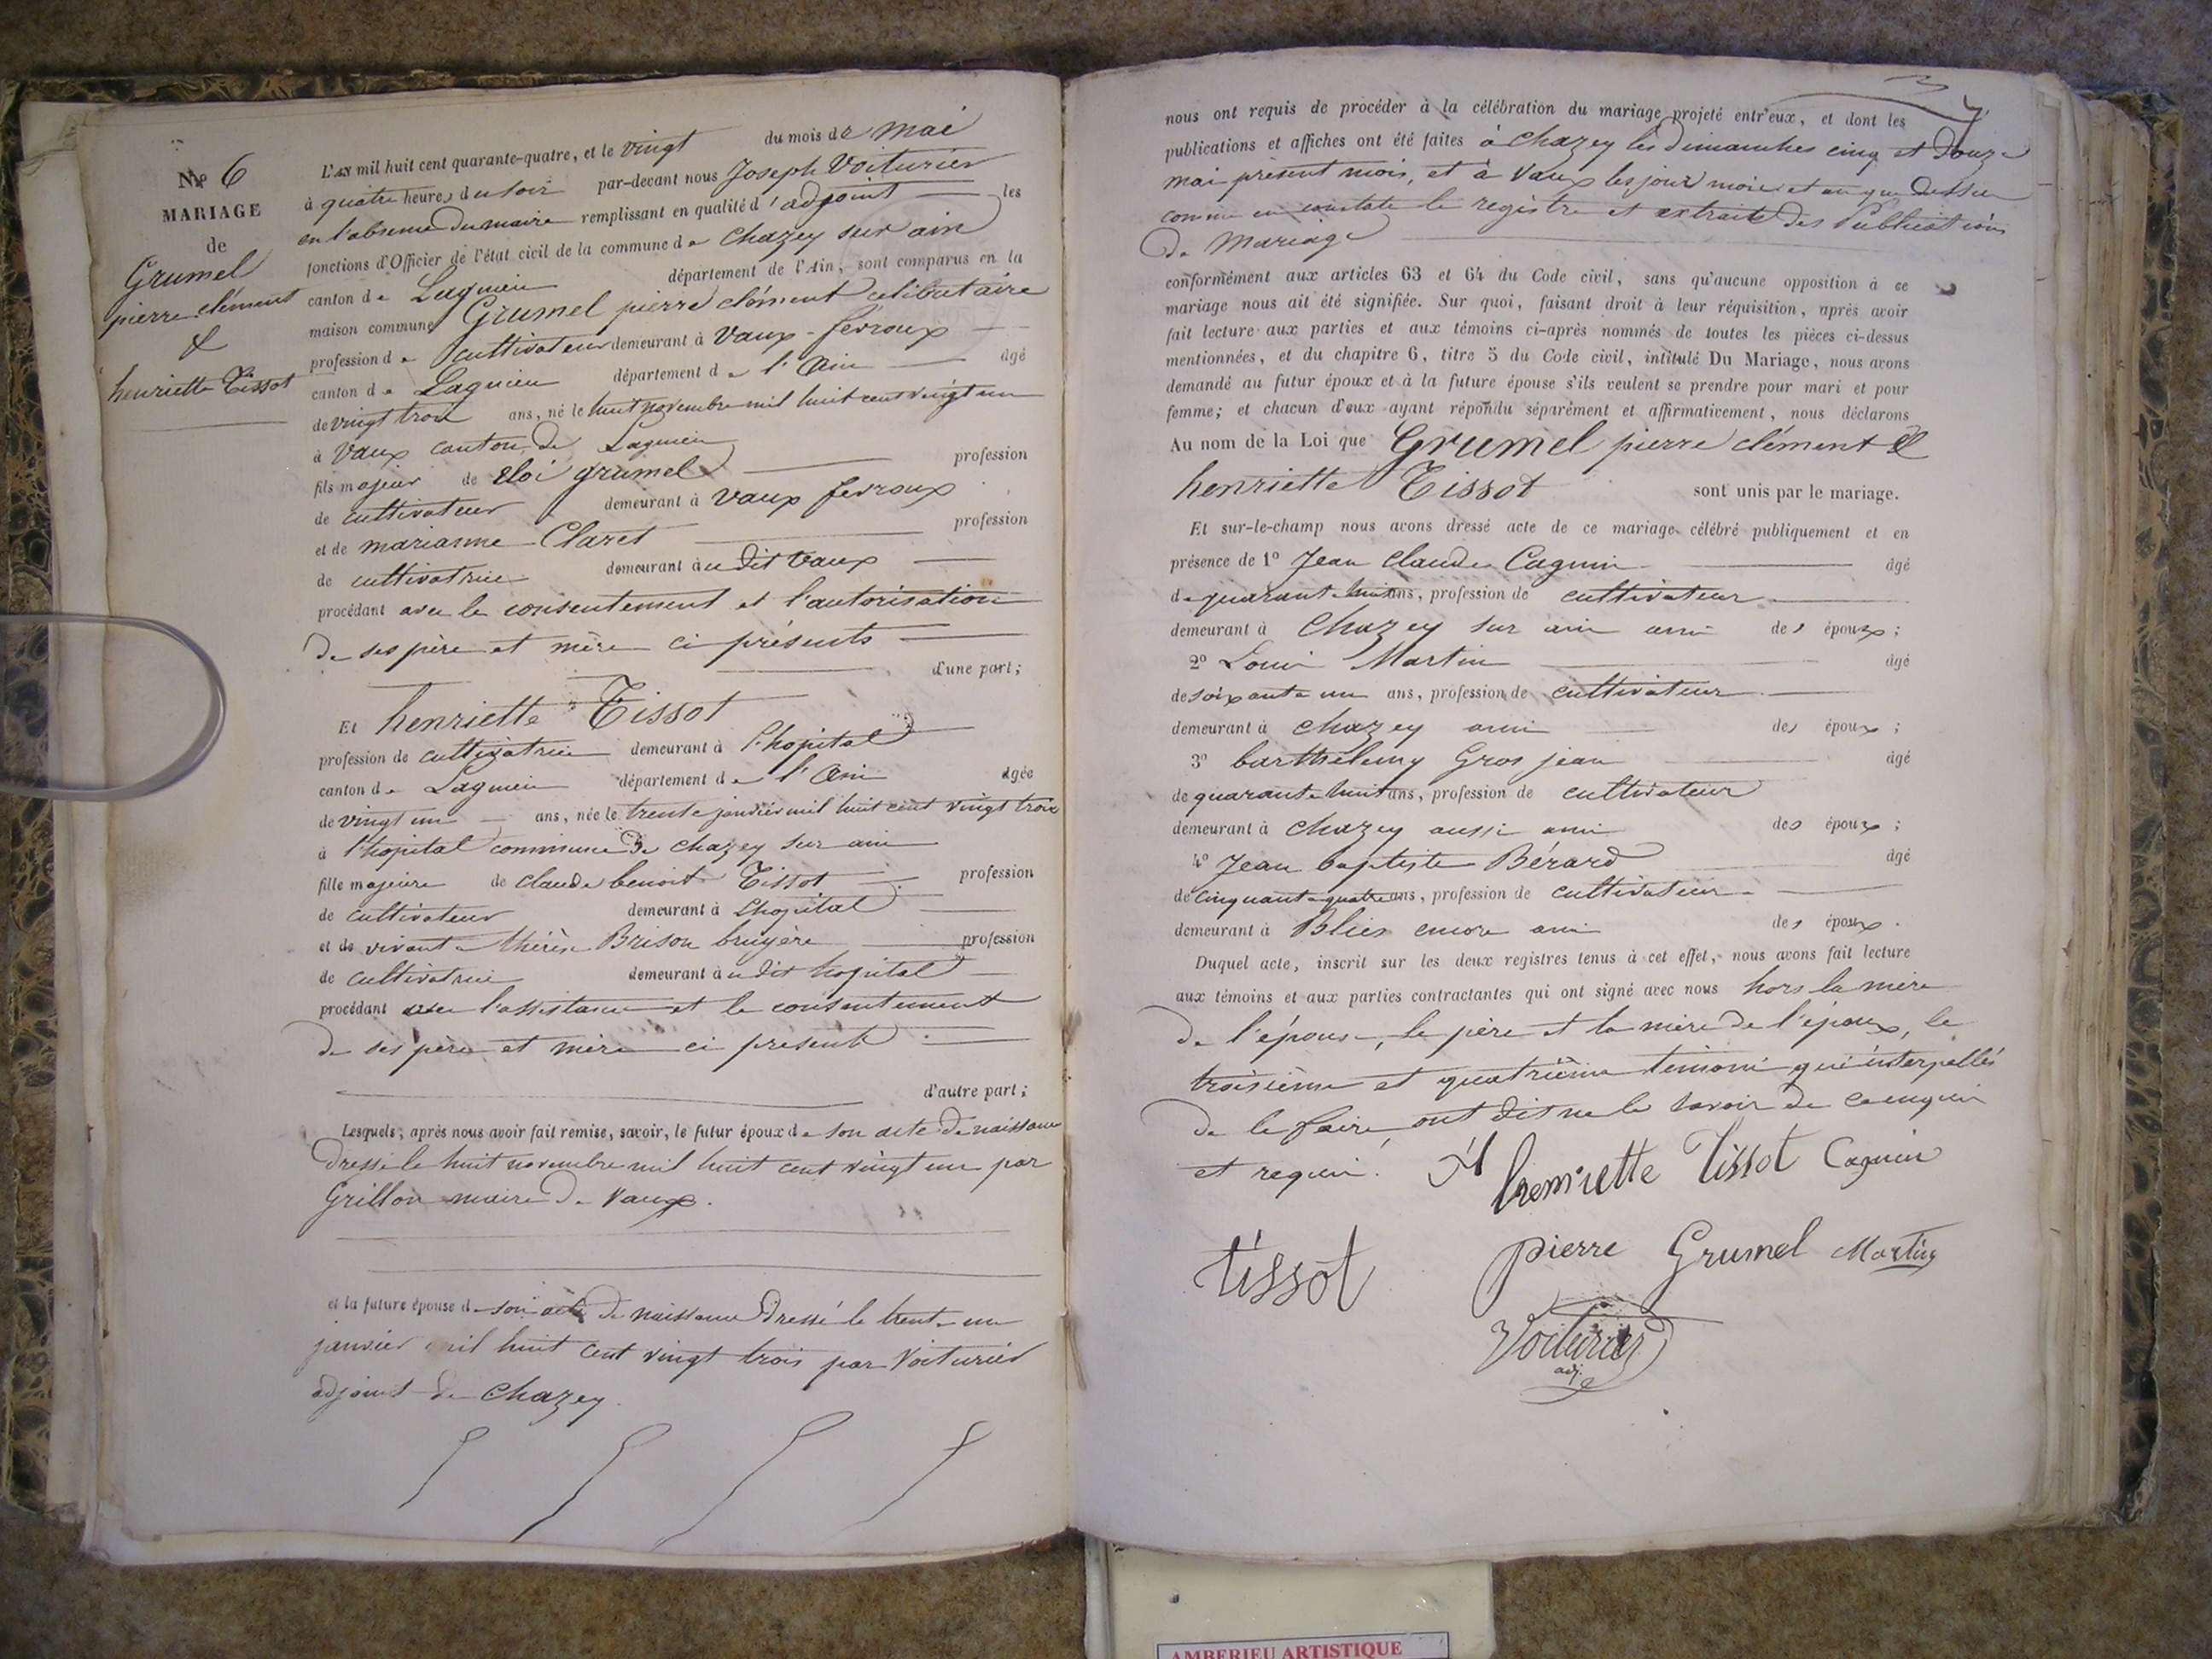 No 6
MARIAGE
de
Grumel
pierre clément
&
henriette Tissot
L'AN mil huit cent quarante-quatre, et le vingt du mois de mai
à quatre heures du soir par-devant nous Joseph Voiturier
en l'absence du maire remplissant en qualité d'adjoint les
fonctions d'Officier de l'état civil de la commune de Chazey sur ain
canton de Lagnieu département de l'Ain, sont comparus en la
maison commune Grumel pierre clément celibataire
profession de cultivateur demeurant à Vaux-fevroux
canton de Lagnieu département de l'Ain âgé
de vingt trois ans, né le huit novembre mil huit cent vingt un
à Vaux canton de Lagnieu
fils majeur de eloi grumel profession
de cultivateur demeurant à Vaux fevroux
et de marianne Claret profession
de cultivatrice demeurant àu dit Vaux
procédant avec le consentement et l'autorisation
de ses père et mère ci présents
d'une part;
Et henriette Tissot
profession de cultivatrice demeurant à l'hopital
canton de Lagnieu département de l'Ain âgée
de vingt un ans, née le trente janvier mil huit cent vingt trois
à l'hopital commune de Chazey sur ain
fille majeure de claude benoit Tissot profession
de cultivateur demeurant à Lhopital
et de vivante thérèse Brison bruyère profession
de cultivatrice demeurant àu dit hopital
procédant avec l'assistance et le consentement
de ses père et mère ci présents
d'autre part;
Lesquels, après nous avoir fait remise, savoir, le futur époux de son acte de naissance
dressé le huit novembre mil huit cent vingt un par
Grillon maire de Vaux.
et la future épouse de son acte de naissance dressé le trente un
janvier mil huit cent vingt trois par Voiturier
adjoint de Chazey.
nous ont requis de procéder à la célébration du mariage projeté entr'eux, et dont les
publications et affiches ont été faites à Chazey les dimanches cinq et douze
mai présent mois, et à Vaux les jour mois et an que dessus
comme en constate le registre et extraits des Publications
de Mariage
conformément aux articles 63 et 64 du Code civil, sans qu'aucune opposition à ce
mariage nous ait été signifiée. Sur quoi, faisant droit à leur réquisition, après avoir
fait lecture aux parties et aux témoins ci-après nommés de toutes les pièces ci-dessus
mentionnées, et du chapitre 6, titre 5 du Code civil, intitulé Du Mariage, nous avons
demandé au futur époux et à la future épouse s'ils veulent se prendre pour mari et pour
femme; et chacun d'eux ayant répondu séparément et affirmativement, nous déclarons
Au nom de la Loi que Grumel pierre clément &
henriette Tissot sont unis par le mariage.
Et sur-le-champ nous avons dressé acte de ce mariage célébré publiquement et en
présence de 1º Jean Claude Cagnin âgé
de quarante huit ans, profession de cultivateur
demeurant à Chazey sur ain ami des époux;
2º Louis Martin âgé
de soixante un ans, profession de cultivateur
demeurant à Chazey ami des époux;
3º barthélemy Gros jean âgé
de quarante huit ans, profession de cultivateur
demeurant à Chazey aussi ami des époux;
4º Jean baptiste Bérard âgé
de cinquante quatre ans, profession de cultivateur
demeurant à Blies encore ami des époux.
Duquel acte, inscrit sur les deux registres tenus à cet effet, nous avons fait lecture
aux témoins et aux parties contractantes qui ont signé avec nous hors la mère
de l'épouse, le père et la mère de l'époux, le
troisième et quatrième temoin qui interpellés
de le faire, ont dit ne le savoir de ce enquis
et requis.
henriette tissot Cagnin
tissot pierre Grumel Martin
Voiturier
adj.
AMBERIEU ARTISTIQUE